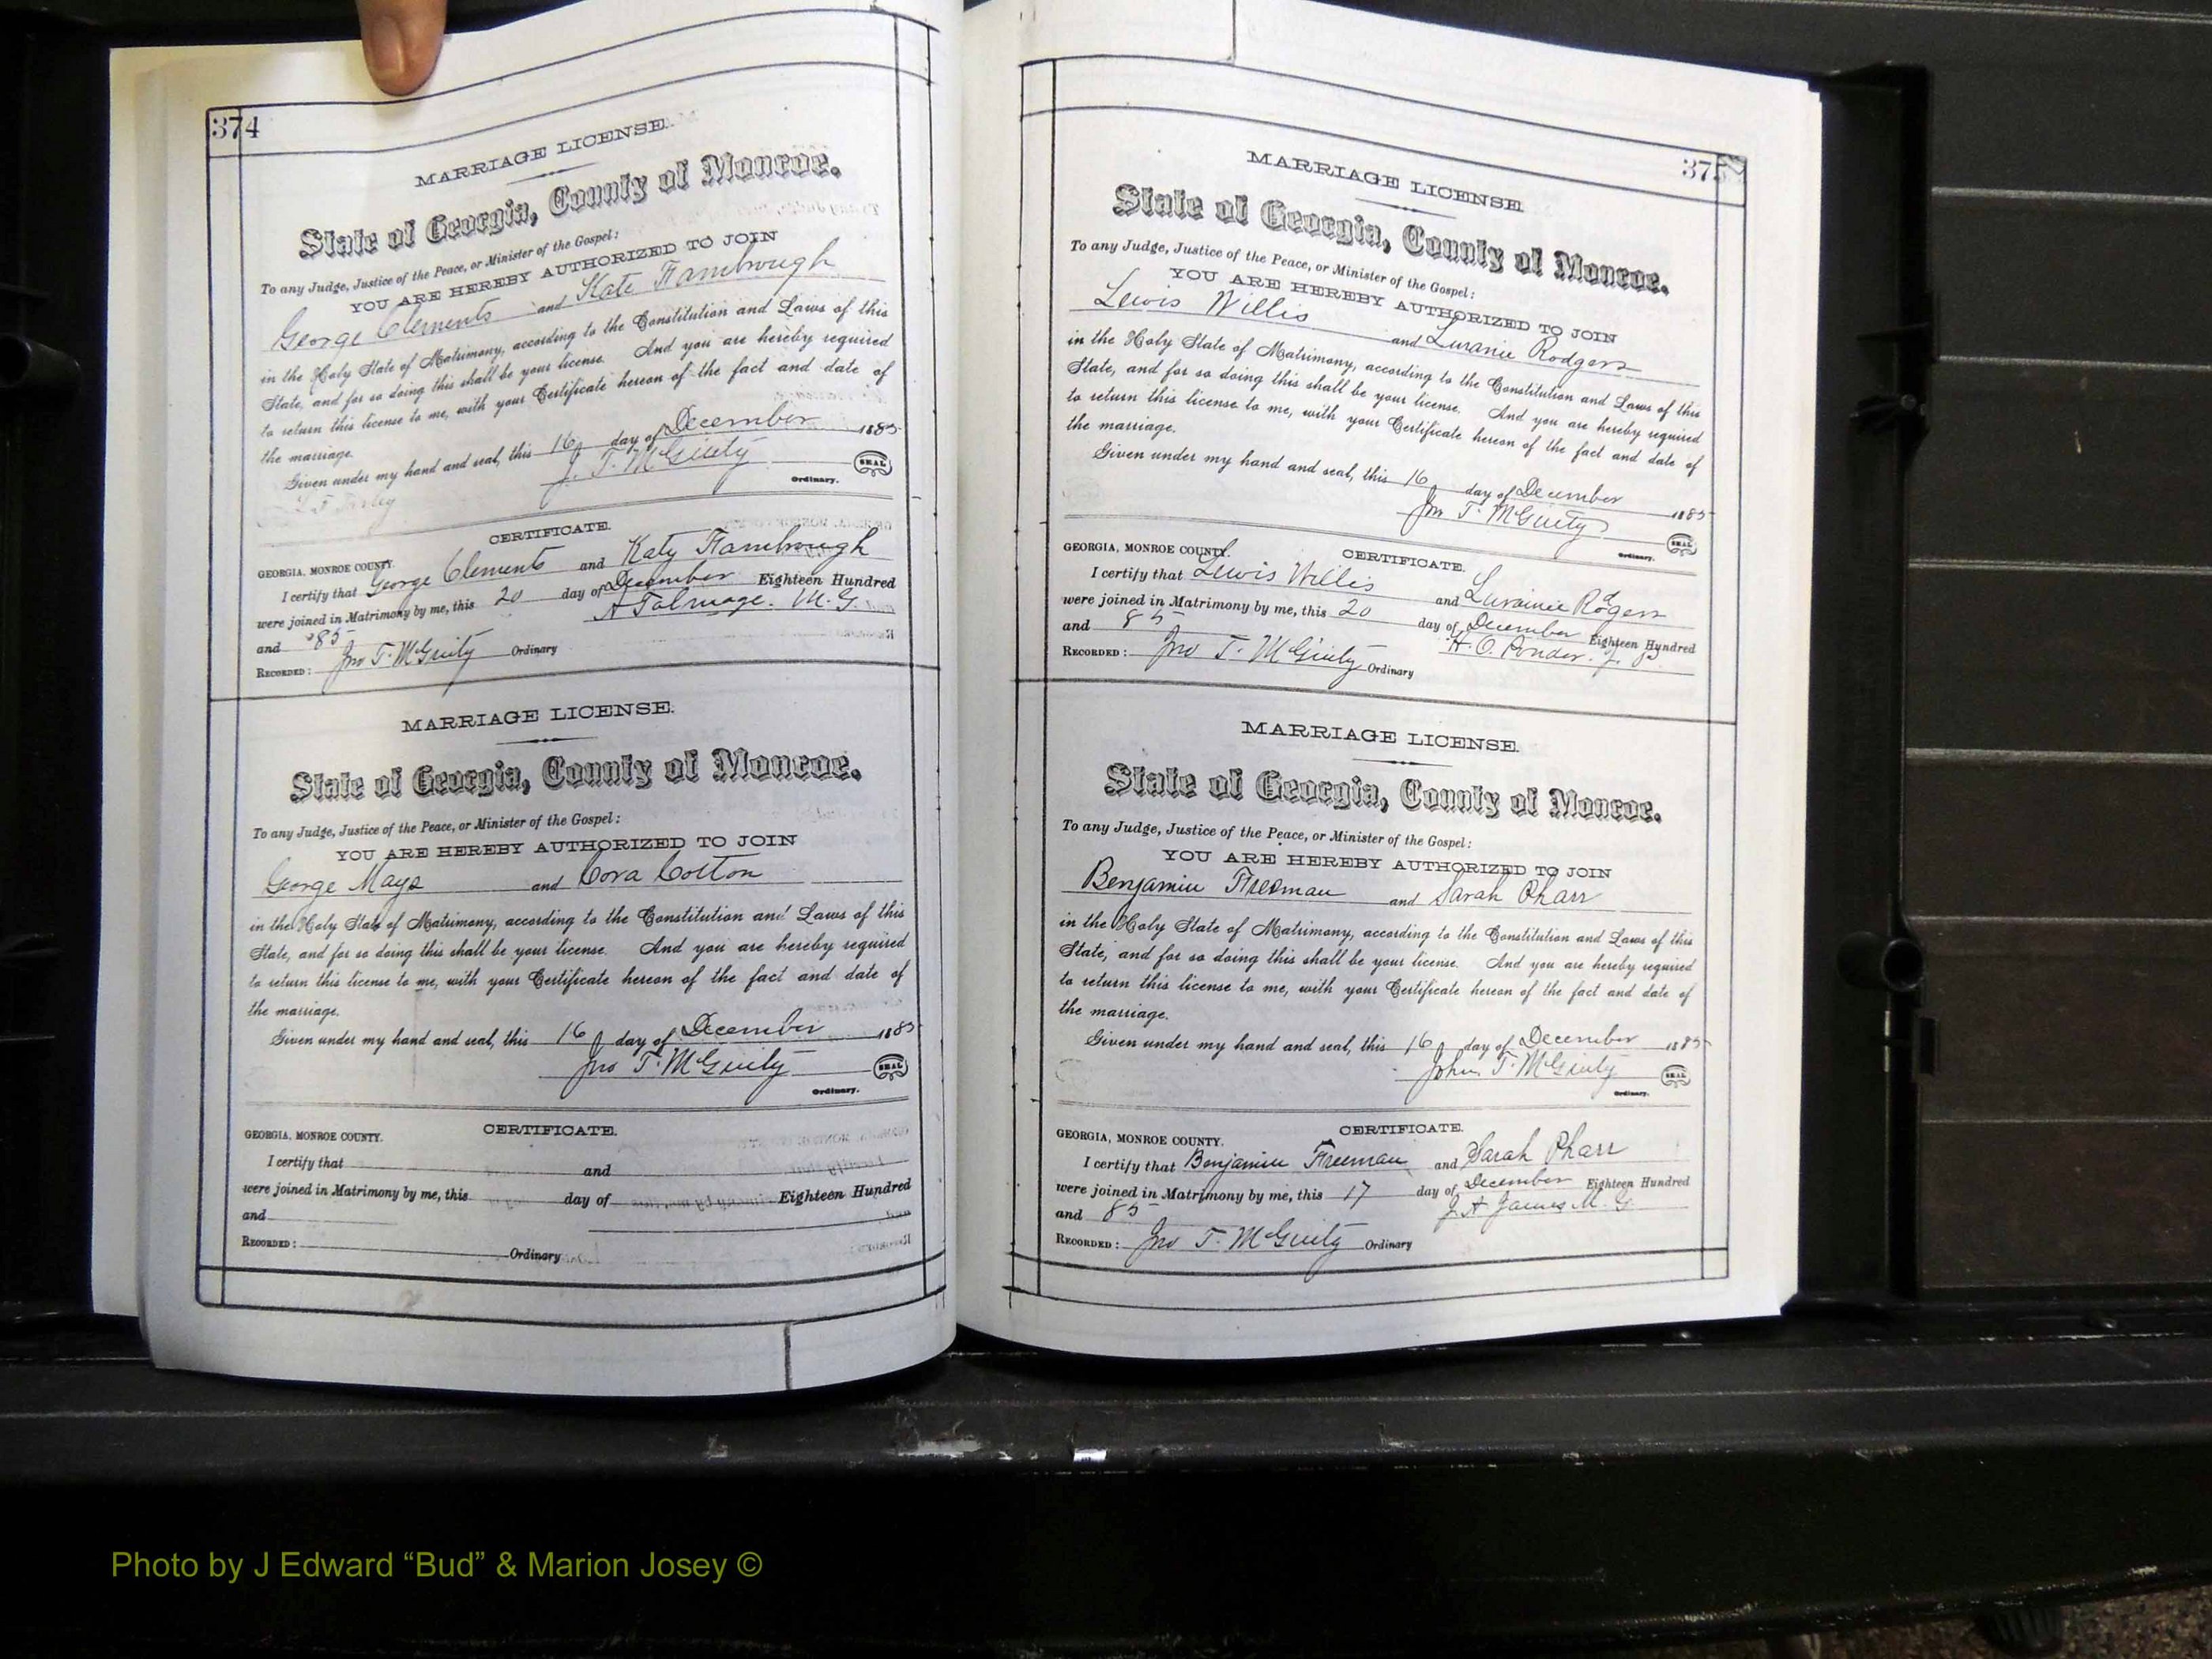 374
MARRIAGE LICENSE.
State of Georgia, County of Monroe.
To any Judge, Justice of the Peace, or Minister of the Gospel:
YOU ARE HEREBY AUTHORIZED TO JOIN
George Clements and Kate Hambrough
in the Holy State of Matrimony, according to the Constitution and Laws of this
State, and for so doing this shall be your license. And you are hereby required
to return this license to me, with your Certificate hereon of the fact and date of
the marriage.
Given under my hand and seal, this 16 day of December 1885
J. T. McGinty SEAL
Ordinary.
CERTIFICATE.
GEORGIA, MONROE COUNTY.
I certify that George Clements and Katy Hambrough
were joined in Matrimony by me, this 20 day of December Eighteen Hundred
and 85 A Talmage. M. G
RECORDED: Jno T. McGinty Ordinary
MARRIAGE LICENSE.
State of Georgia, County of Monroe.
To any Judge, Justice of the Peace, or Minister of the Gospel:
YOU ARE HEREBY AUTHORIZED TO JOIN
George Mays and Cora Cotton
in the Holy State of Matrimony, according to the Constitution and Laws of this
State, and for so doing this shall be your license. And you are hereby required
to return this license to me, with your Certificate hereon of the fact and date of
the marriage.
Given under my hand and seal, this 16 day of December 1885
Jno T. McGinty SEAL
Ordinary.
CERTIFICATE.
GEORGIA, MONROE COUNTY.
I certify that and
were joined in Matrimony by me, this day of Eighteen Hundred
and
RECORDED: Ordinary
375
MARRIAGE LICENSE.
State of Georgia, County of Monroe.
To any Judge, Justice of the Peace, or Minister of the Gospel:
YOU ARE HEREBY AUTHORIZED TO JOIN
Lewis Willis and Luranie Rodgers
in the Holy State of Matrimony, according to the Constitution and Laws of this
State, and for so doing this shall be your license. And you are hereby required
to return this license to me, with your Certificate hereon of the fact and date of
the marriage.
Given under my hand and seal, this 16 day of December 1885
Jno T. McGinty SEAL
Ordinary.
CERTIFICATE.
GEORGIA, MONROE COUNTY.
I certify that Lewis Willis and Lurainie Rogers
were joined in Matrimony by me, this 20 day of December Eighteen Hundred
and 85 H. O. Ponder. J. P.
RECORDED: Jno T. McGinty Ordinary
MARRIAGE LICENSE.
State of Georgia, County of Monroe.
To any Judge, Justice of the Peace, or Minister of the Gospel:
YOU ARE HEREBY AUTHORIZED TO JOIN
Benjamin Freeman and Sarah Pharr
in the Holy State of Matrimony, according to the Constitution and Laws of this
State, and for so doing this shall be your license. And you are hereby required
to return this license to me, with your Certificate hereon of the fact and date of
the marriage.
Given under my hand and seal, this 16 day of December 1885
John T. McGinty SEAL
Ordinary.
CERTIFICATE.
GEORGIA, MONROE COUNTY.
I certify that Benjamin Freeman and Sarah Pharr
were joined in Matrimony by me, this 17 day of December Eighteen Hundred
and 85 J A James M. G.
RECORDED: Jno T. McGinty Ordinary
Photo by J Edward “Bud” & Marion Josey ©